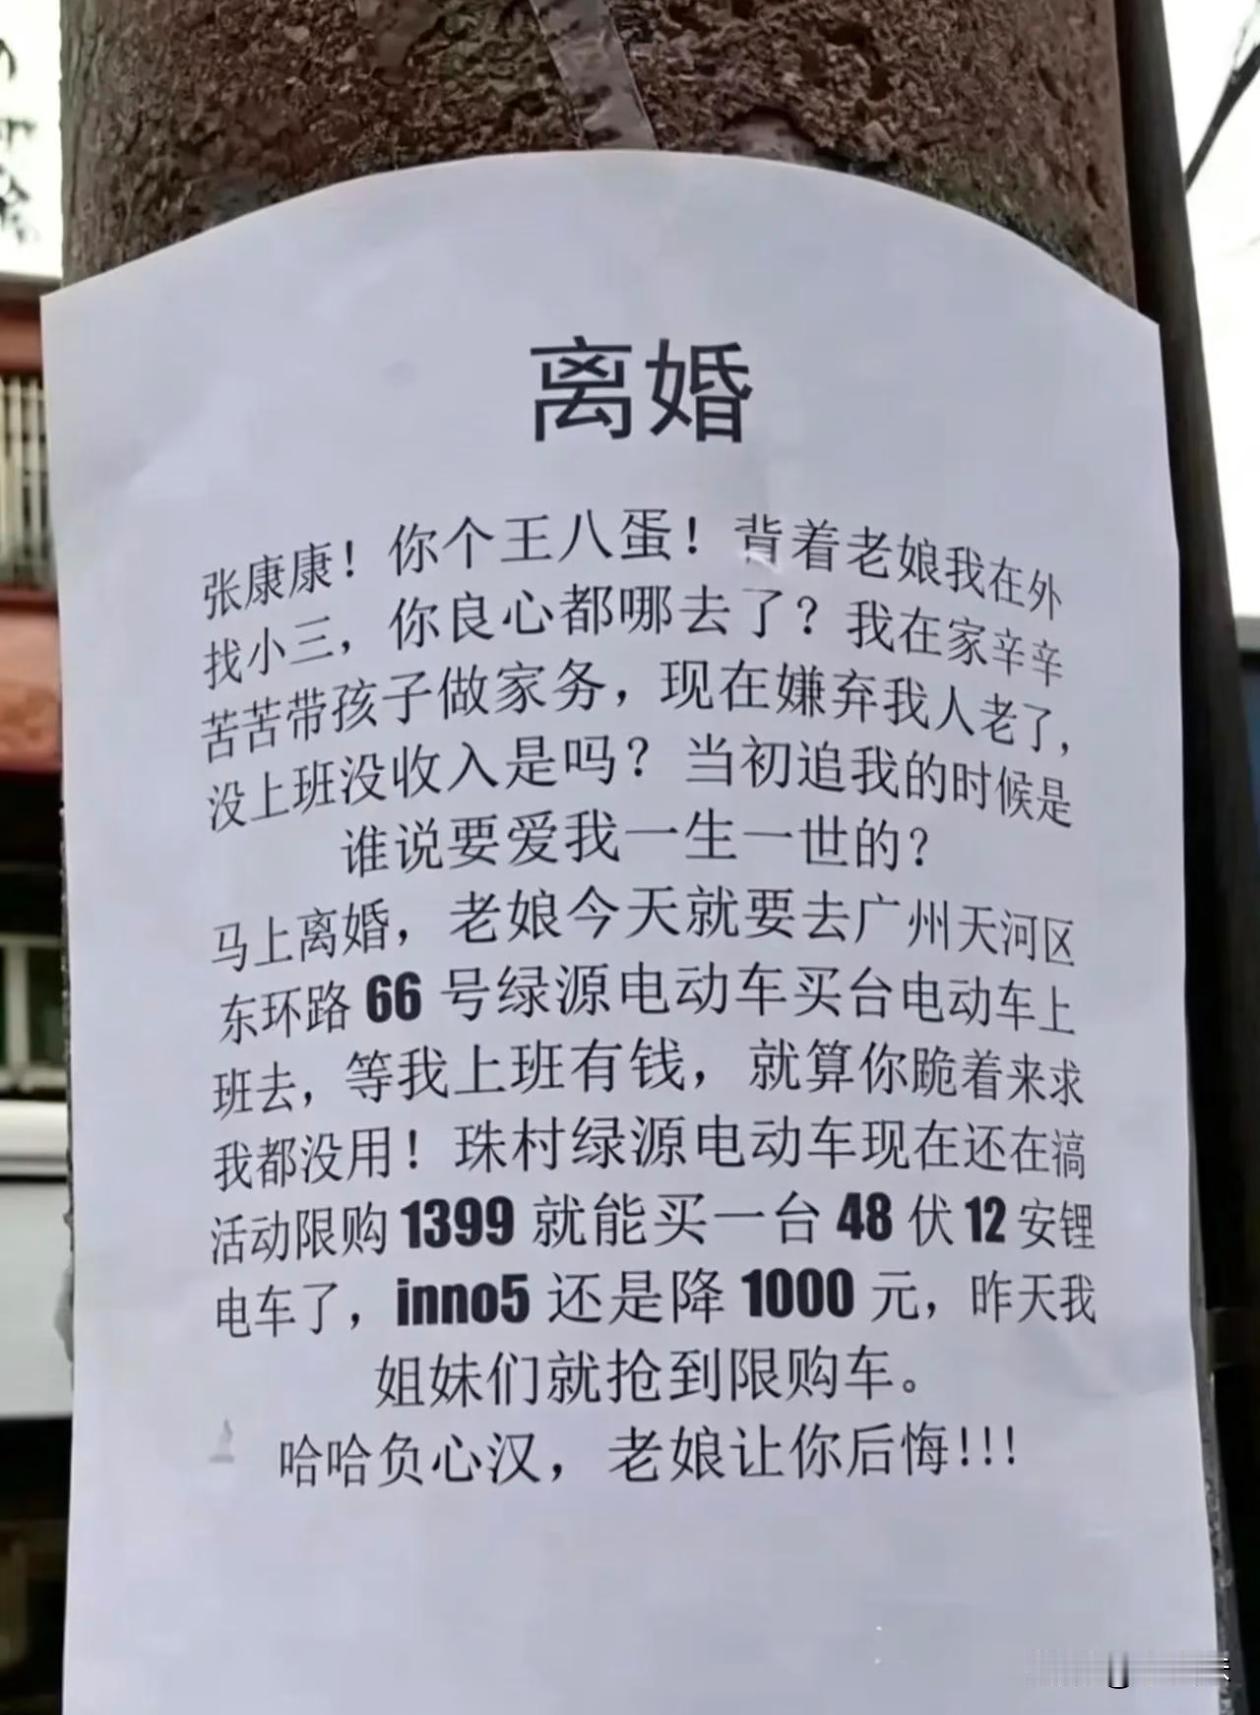 离婚
张康康！你个王八蛋！背着老娘我在外
找小三，你良心都哪去了？我在家辛辛
苦苦带孩子做家务，现在嫌弃我人老了，
没上班没收入是吗？当初追我的时候是
谁说要爱我一生一世的？
马上离婚，老娘今天就要去广州天河区
东环路 66 号绿源电动车买台电动车上
班去，等我上班有钱，就算你跪着来求
我都没用！珠村绿源电动车现在还在搞
活动限购 1399 就能买一台 48 伏 12 安锂
电车了，inno5 还是降 1000 元，昨天我
姐妹们就抢到限购车。
哈哈负心汉，老娘让你后悔！！！